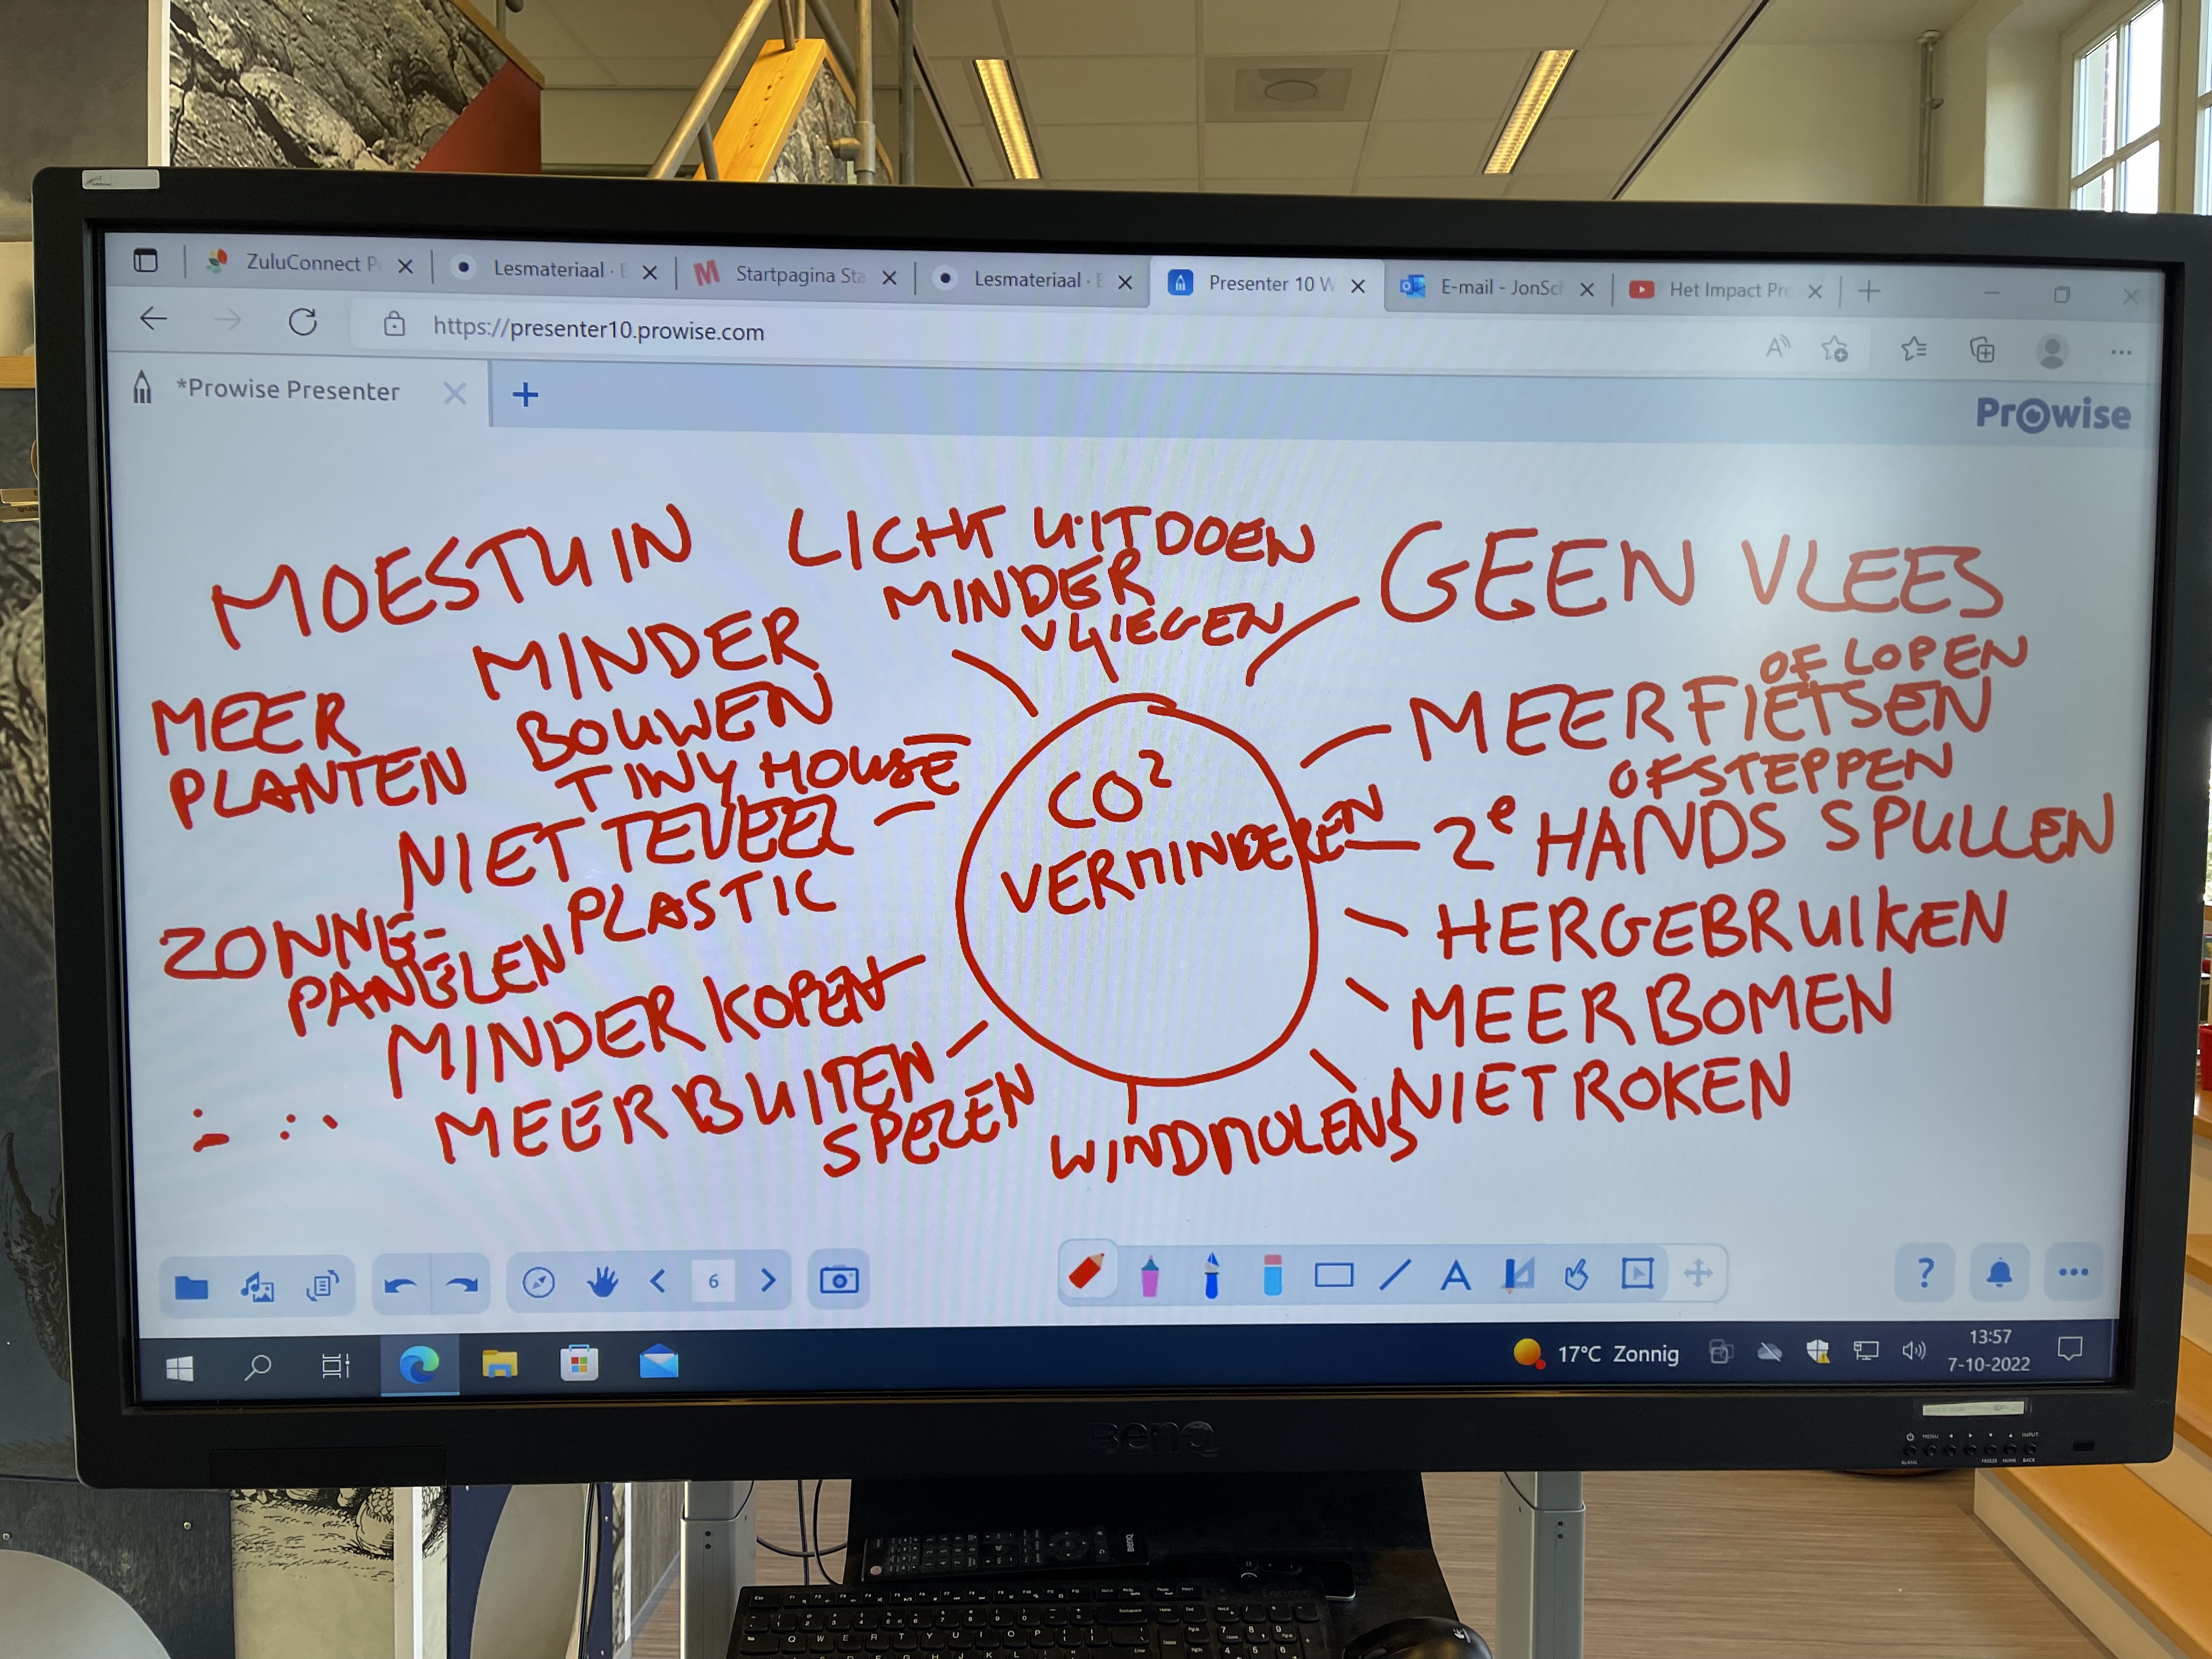 ZuluConnect P
Lesmateriaal · E
Startpagina Sta
Lesmateriaal · E
Presenter 10 W
E-mail - JonSch
Het Impact Pro
https://presenter10.prowise.com
*Prowise Presenter
Prowise
MOESTUIN
LICHT UITDOEN
MINDER
VLIEGEN
GEEN VLEES
MINDER
BOUWEN
TINY HOUSE
MEER
PLANTEN
OF LOPEN
MEER FIETSEN
OF STEPPEN
CO²
VERMINDEREN
2e HANDS SPULLEN
NIET TEVEEL
PLASTIC
HERGEBRUIKEN
ZONNE-
PANELEN
MINDER KOPEN
MEER BOMEN
MEER BUITEN
SPELEN
WINDMOLENS
NIET ROKEN
6
A
?
17°C Zonnig
13:57
7-10-2022
BenQ